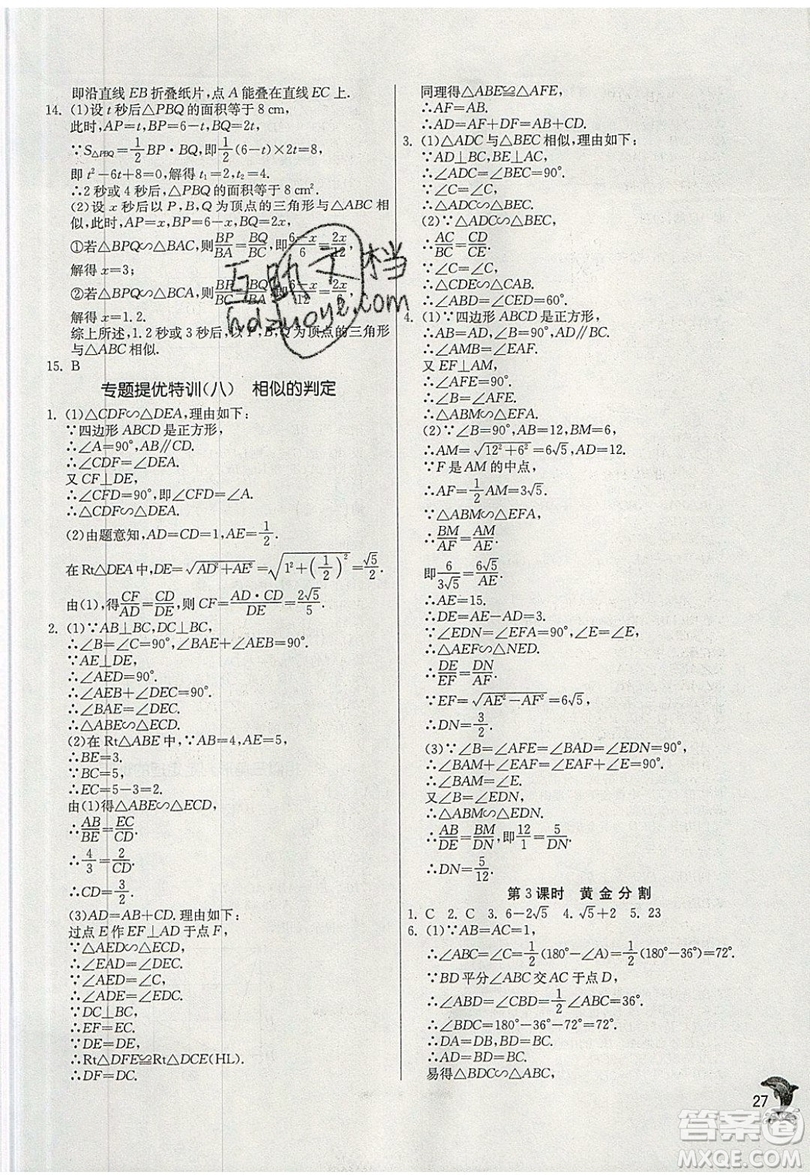 即沿直线 EB 折叠纸片,点 A 能叠在直线 EC 上.
14. (1)设 t 秒后△PBQ 的面积等于 8 cm,
此时,AP=t,BP=6-t,BQ=2t,
∵S△PBQ=1/2 BP·BQ,即1/2(6-t)×2t=8,
即 t²-6t+8=0,解得 t₁=2,t₂=4.
∴2 秒或 4 秒后,△PBQ 的面积等于 8 cm².
(2)设 x 秒后以 P、B、Q 为顶点的三角形与△ABC 相
似,此时,AP=x,BP=6-x,BQ=2x,
①若△BPQ∽△BAC,则BP/BA=BQ/BC,即(6-x)/6=2x/12,
解得 x=3;
②若△BPQ∽△BCA,则BP/BC=BQ/BA,即(6-x)/12=2x/6,
解得 x=1.2.
综上所述,1.2 秒或 3 秒后,以 P、B、Q 为顶点的三角形
与△ABC 相似.
15. B
专题提优特训(八) 相似的判定
1. (1)△CDF∽△DEA,理由如下:
∵四边形 ABCD 是正方形,
∴∠A=90°,AB∥CD.
∴∠CDF=∠DEA.
又 CF⊥DE,
∴∠CFD=90°,即∠CFD=∠A.
∴△CDF∽△DEA.
(2)由题意知,AD=CD=1,AE=1/2.
在 Rt△DEA 中,DE=√(AD²+AE²)=√(1²+(1/2)²)=√5/2.
由(1),得CF/AD=CD/DE,则 CF=AD·CD/DE=2√5/5.
2. (1)∵AB⊥BC,DC⊥BC,
∴∠B=∠C=90°,∠BAE+∠AEB=90°.
∵AE⊥DE,
∴∠AED=90°.
∴∠AEB+∠DEC=90°.
∴∠BAE=∠DEC.
∴△ABE∽△ECD.
(2)在 Rt△ABE 中,∵AB=4,AE=5,
∴BE=3.
∵BC=5,
∴EC=5-3=2.
由(1)得△ABE∽△ECD,
∴AB/BE=EC/CD.
∴4/3=2/CD.
∴CD=3/2.
(3)AD=AB+CD. 理由如下:
过点 E 作 EF⊥AD 于点 F,
∵△AED∽△ECD,
∴∠EAD=∠DEC.
∴∠ADE=∠EDC.
∵DC⊥BC,
∴EF=EC.
∵DE=DE,
∴Rt△DFE≌Rt△DCE(HL).
∴DF=DC.
同理得△ABE≌△AFE,
∴AF=AB.
∴AD=AF+DF=AB+CD.
3. (1)△ADC 与△BEC 相似,理由如下:
∵AD⊥BC,BE⊥AC,
∴∠ADC=∠BEC=90°.
∵∠C=∠C,
∴△ADC∽△BEC.
(2)∵△ADC∽△BEC,
∴AC/BC=CD/CE.
∵∠C=∠C,
∴△CDE∽△CAB.
4. (1)∵四边形 ABCD 是正方形,
∴AB=AD,∠B=90°,AD∥BC.
∴∠AMB=∠EAF.
又 EF⊥AM,
∴∠AFE=90°.
∴∠B=∠AFE.
∴△ABM∽△EFA.
(2)∵∠B=90°,AB=12,BM=6,
∴AM=√(12²+6²)=6√5,AD=12.
∵F 是 AM 的中点,
∴AF=1/2AM=3√5.
∵△ABM∽△EFA,
∴BM/AF=AM/AE.
即6/3√5=6√5/AE.
∴AE=15.
∴DE=AE-AD=3.
∵∠EDN=∠EFA=90°,∠E=∠E,
∴△AEF∽△NED.
∴DE/EF=DN/AF.
∵EF=√(AE²-AF²)=6√5,
∴DN=3/2.
(3)∵∠B=∠AFE=∠BAD=∠EDN=90°,
∴∠BAM+∠EAF=∠EAF+∠E=90°.
∴∠BAM=∠E.
又∠B=∠EDN,
∴△ABM∽△EDN.
∴AB/DE=BM/DN,即12/1=5/DN.
∴DN=5/12.
第 3 课时 黄金分割
1. C 2. C 3. 6-2√5 4. √5+2 5. 23
6. (1)∵AB=AC=1,
∴∠ABC=∠C=1/2(180°-∠A)=1/2(180°-36°)=72°.
∵BD 平分∠ABC 交 AC 于点 D,
∴∠ABD=∠CBD=1/2∠ABC=36°.
∴∠BDC=180°-36°-72°=72°.
∴DA=DB,BD=BC.
∴AD=BD=BC.
易得△BDC∽△ABC,
27
互助文档
hdzuoye.com
答案圈
MXQE.COM